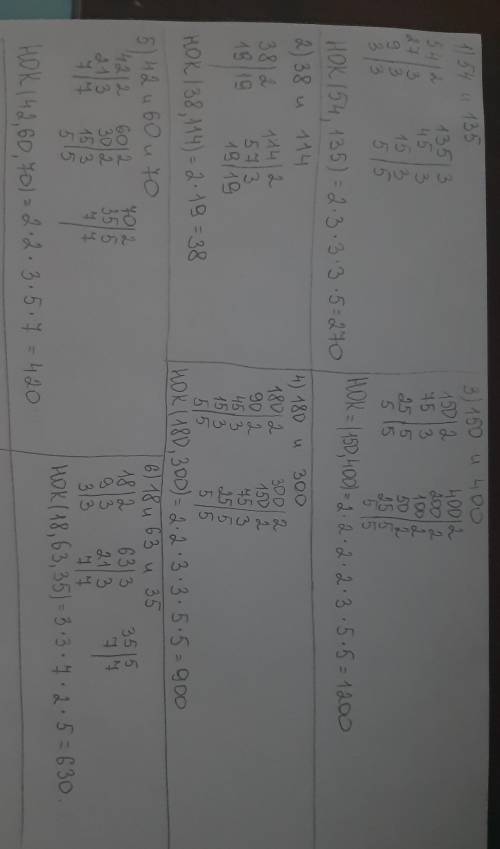 1) 54 и 135
54|2 135|3
27|3 45|3
9|3 15|3
3|3 5|5
НОК(54, 135) = 2·3·3·3·5=270
2) 38 и 114
38|2 114|2
19|19 57|3
19|19
НОК(38, 114) = 2·19 = 38
5) 42 и 60 и 70
42|2 60|2 70|2
21|3 30|2 35|5
7|7 15|3 7|7
5|5
НОК(42,60,70) = 2·2·3·5·7 = 420
3) 150 и 400
150|2 400|2
75|3 200|2
25|5 100|2
5|5 50|2
25|5
5|5
НОК=(150,400)=2·2·2·2·3·5·5=1200
4) 180 и 300
180|2 300|2
90|2 150|2
45|3 75|3
15|3 25|5
5|5 5|5
НОК(180,300)=2·2·3·3·5·5=900
6) 18 и 63 и 35
18|2 63|3 35|5
9|3 21|3 7|7
3|3 7|7
НОК(18,63,35)=3·3·7·2·5=630.